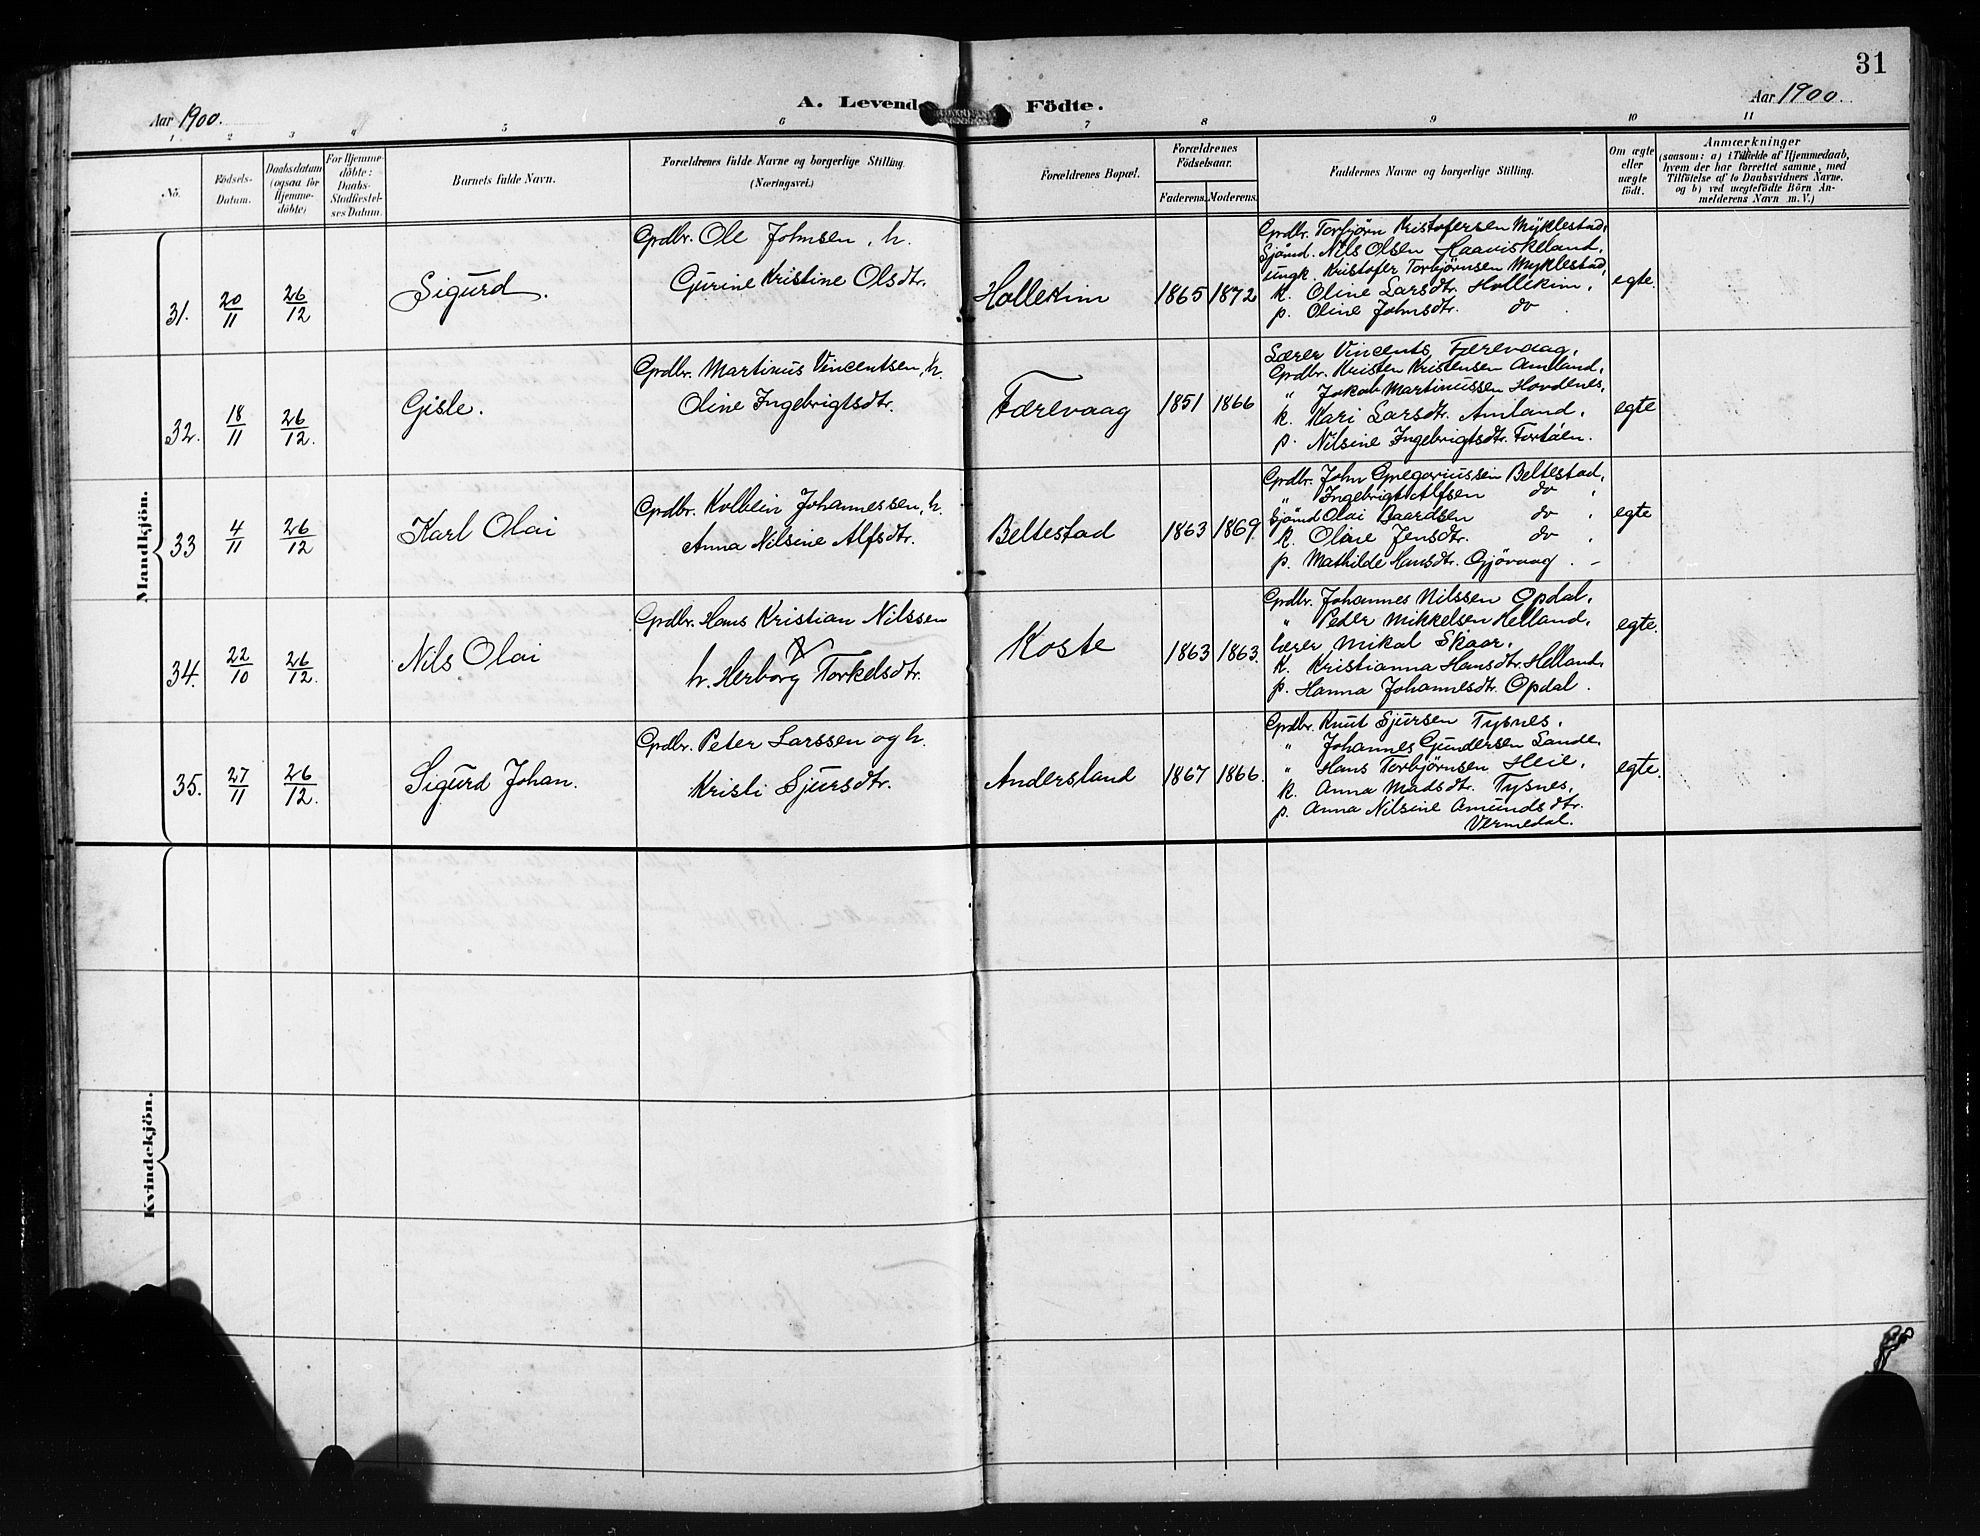 31
Aar 1900.
A. Levende Födte.
Aar 1900.
1 2 3 4 5 6 7 8 9 10 11
No.
Födsels-
Datum.
Daabsdatum
(ogsaa for
Hjemme-
döbte)
For Hjemme-
döbte:
Daabs-
Stadfæstel-
ses Datum.
Barnets fulde Navn.
Forældrenes fulde Navne og borgerlige Stilling.
(Næringsvei.)
Forældrenes Bopæl.
Forældrenes
Födselsaar.
Faderens. Moderens.
Faddernes Navne og borgerlige Stilling.
Om ægte
eller
uægte
födt.
Anmærkninger
(saasom: a) i Tilfælde af Hjemmedaab,
hvem der har forrettet samme, med
Tilföielse af to Daabsvidners Navne.
og b) ved uægtefödte Börn An-
melderens Navn m. V.)
Mandkjön.
31. 20/11 26/12 Sigurd.
Grdbr. Ole Johnsen, h.
Gurine Kristine Olsdtr.
Hollekim 1865 1872
Grdbr. Torbjørn Kristofersen Myklestad,
Sjömd. Nils Olsen Haaviskeland,
ungk. Kristofer Torbjørnsen Myklestad,
k. Oline Larsdtr. Hollekim,
p. Oline Johnsdtr. do
egte.
32. 18/11 26/12. Gisle.
Grdbr. Martinus Vincentsen, h.
Oline Ingebrigtsdtr.
Færevaag 1851 1866
Lærer Vincents Færevaag,
Grdbr. Kristen Kristensen Amland,
" Jakob Martinussen Hovdenes,
k. Kari Larsdtr. Amland,
p. Nilsine Ingebrigtsdtr. Tortåen.
egte
33 4/11 26/12 Karl Olai
Grdbr. Kolbein Johannessen, h.
Anna Nilsine Alfsdtr.
Beltestad 1863 1869.
Grdbr. John Gregoriussen Beltestad,
" Ingebrigt Alfsen do,
Sjömd Olai Baardsen do,
k. Oline Jensdtr. do,
p. Mathilde Hansdtr. Gjövaag. -
egte
34. 22/10 26/12. Nils Olai
Grdbr. Hans Kristian Nilssen
h. Herborg Torkelsdtr.
Koste 1863 1863.
Grdbr. Johannes Nilssen Opdal,
" Peder Mikkelsen Helland,
Lærer Mikal Skaar,
k. Kristianna Hansdtr. Helland,
p. Hanna Johannesdtr. Opdal.
egte.
35. 27/11 26/12. Sigurd Johan.
Grdbr. Peter Larssen og h.
Kristi Sjursdtr.
Andersland 1867 1866.
Grdbr. Knut Sjursen Tysnes,
" Johannes Gundersen Lande,
" Hans Torbjørnsen Heie,
k. Anna Madsdtr. Tysnes,
p. Anna Nilsine Amundsdtr.
Vermedal.
egte.
Kvindekjön.